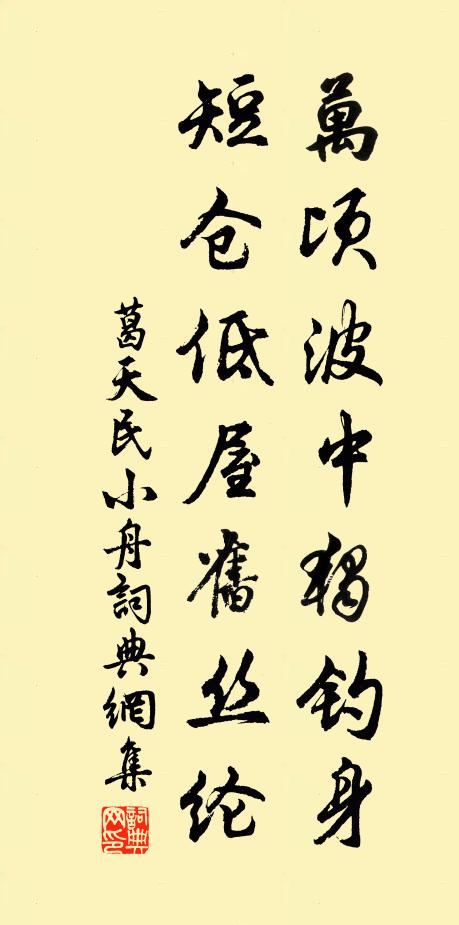 萬頃波中獨釣身
短仓低屋舊丝纶
葛天民小舟詞典網集
詞典网印